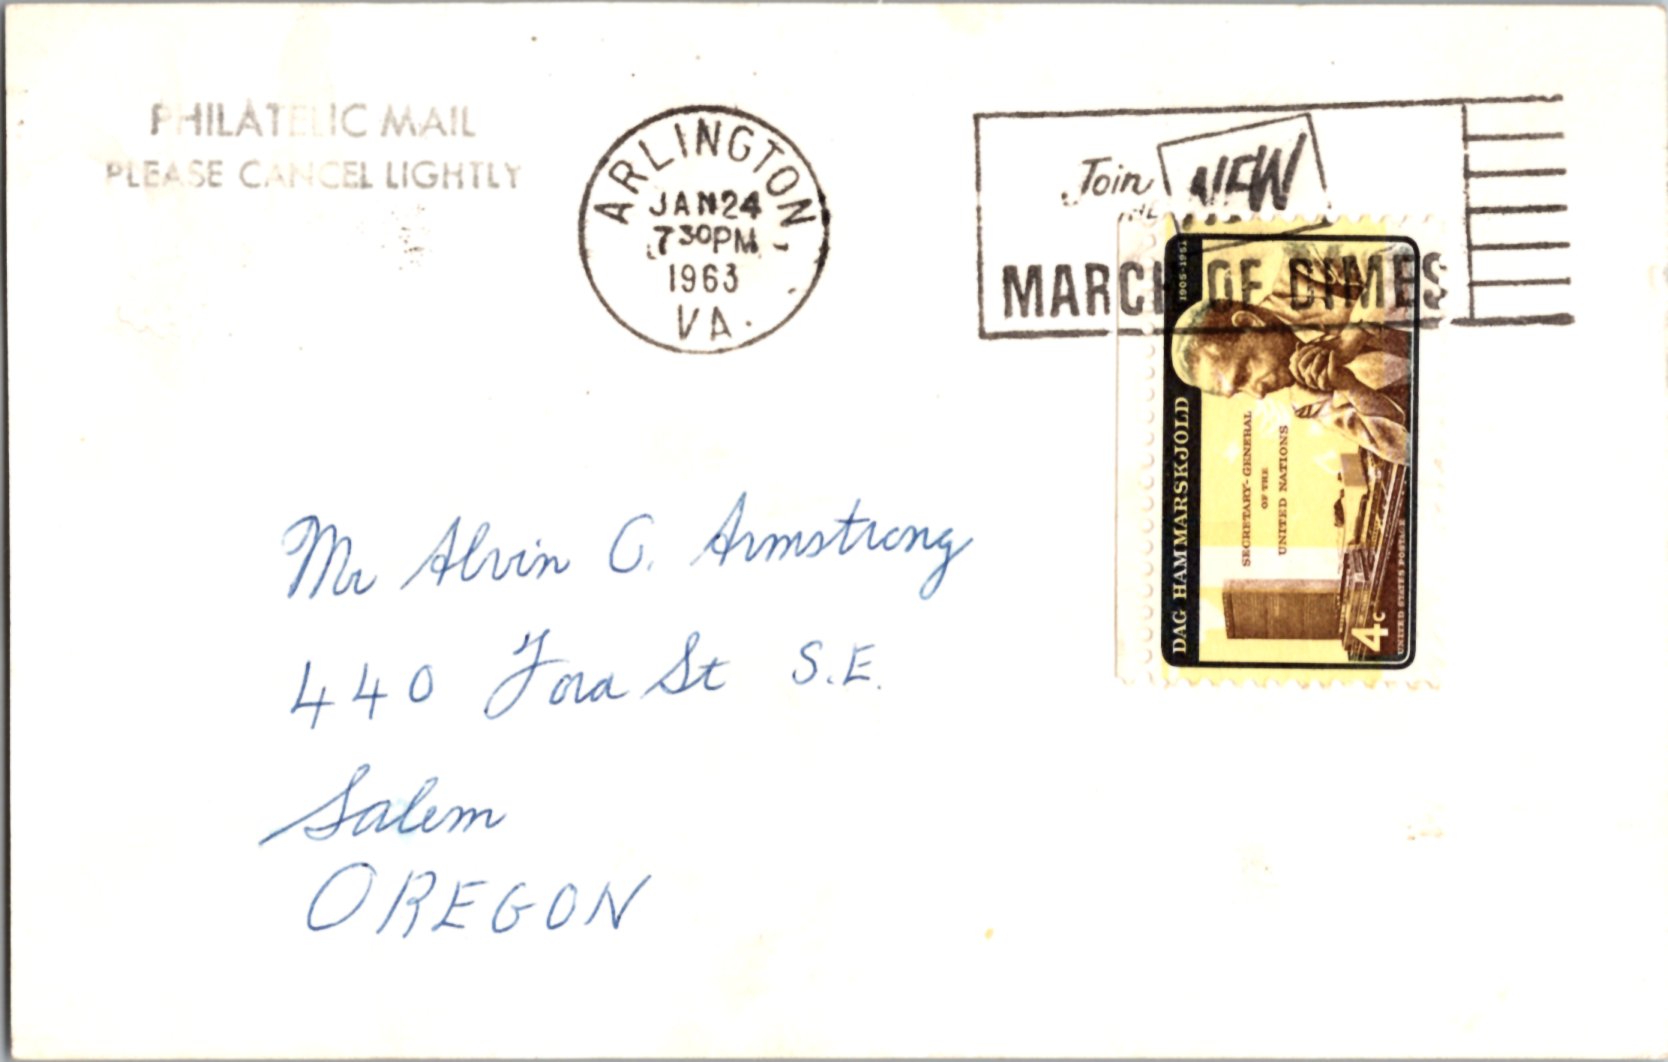 PHILATELIC MAIL
PLEASE CANCEL LIGHTLY
ARLINGTON
JAN 24
7 30 PM
1963
VA.
Join
THE
NEW
MARCH OF DIMES
DAG HAMMARSKJOLD
1905-1961
SECRETARY-GENERAL
OF THE
UNITED NATIONS
4c
UNITED STATES POSTAGE
Mr Alvin C. Armstrong
440 St S.E.
Salem
OREGON